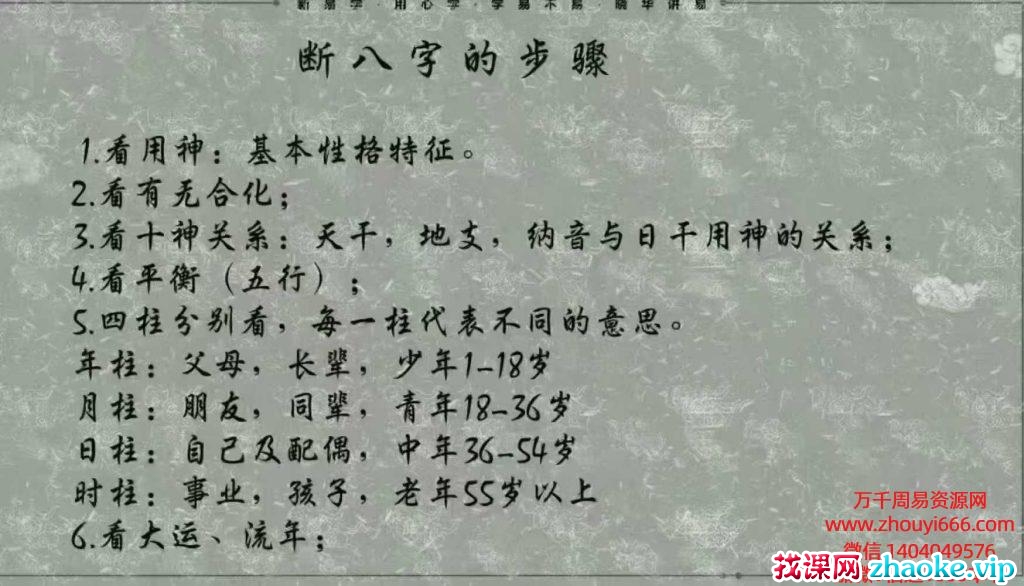 新易学·用心学·学易不易·晓华讲易
断八字的步骤
1.看用神：基本性格特征。
2.看有无合化；
3.看十神关系：天干，地支，纳音与日干用神的关系；
4.看平衡（五行）；
5.四柱分别看，每一柱代表不同的意思。
年柱：父母，长辈，少年1-18岁
月柱：朋友，同辈，青年18-36岁
日柱：自己及配偶，中年36-54岁
时柱：事业，孩子，老年55岁以上
6.看大运、流年；
万千周易资源网
www.zhouyi666.com
微信 1404049576
找课网 zhaoke.vip